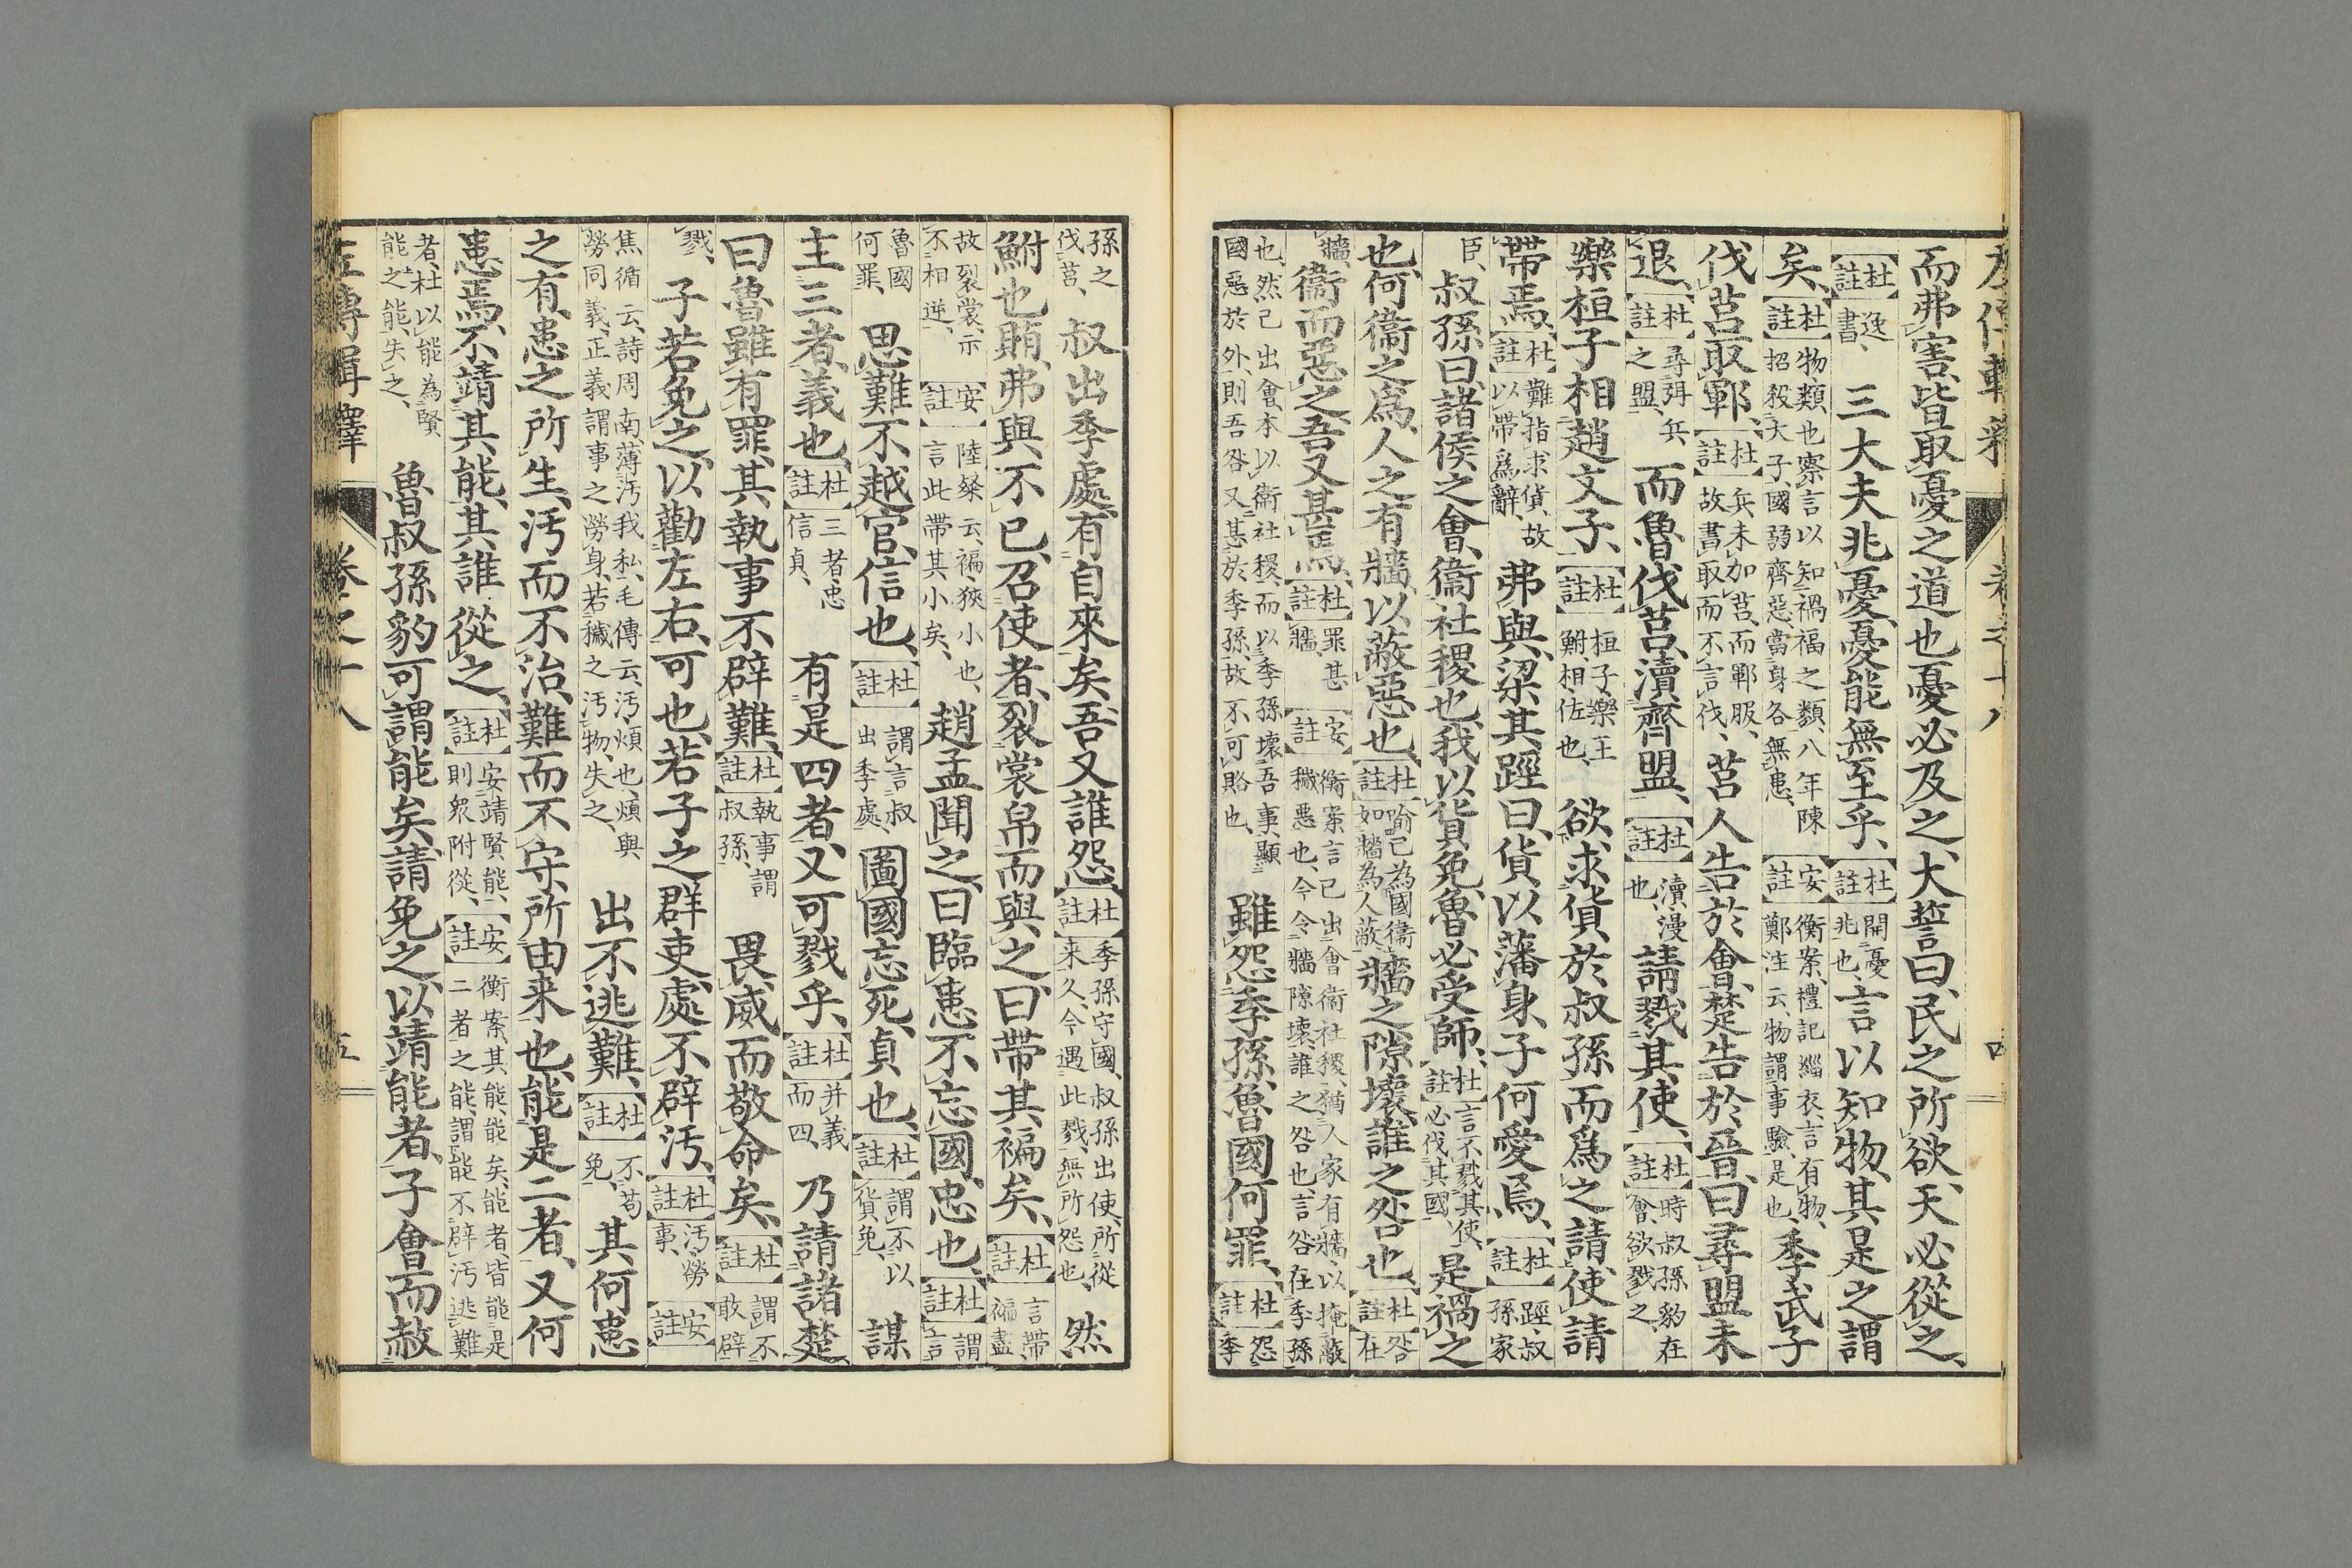 左傳輯釋 卷之十八 四
而弗害、皆取憂之道也憂必及之、大誓曰、民之所欲、天必從之、
【杜註】逸書、三大夫兆憂、憂能無至乎、【杜註】開憂兆也、言以知物、其是之謂
矣、【杜註】物、類也、察言以知禍福之類、八年陳招殺大子、國弱齊惡、當身各無患、【安註】衡案、禮記緇衣、言有物、鄭注云、物謂事驗、是也、季武子
伐莒取鄆、【杜註】兵未加莒、而鄆服、故書取而不言伐、莒人告於會、楚告於晉、曰尋盟未
退、【杜註】尋弭兵之盟、而魯伐莒、瀆齊盟、【杜註】瀆、漫也、請戮其使、【杜註】時叔孫豹在會、欲戮之、
樂桓子相趙文子、【杜註】桓子、樂王鮒、相、佐也、欲求貨於叔孫、而爲之請、使請
帶焉、【杜註】難指求貨、故以帶爲辭、弗與、梁其踁曰、貨以藩身、子何愛焉、【杜註】踁、叔孫家
臣、叔孫曰、諸侯之會、衞社稷也、我以貨免、魯必受師、【杜註】言不戮其使、必伐其國、是禍之
也、何衞之爲、人之有牆、以蔽惡也、【杜註】喻己為國衞、如牆為人蔽、牆之隙壞、誰之咎也、【杜註】咎在
牆、衞而惡之、吾又甚焉、【杜註】罪甚牆、【安註】衡案、言己出會衞社稷、猶人家有牆、以掩蔽穢惡也、今令牆隙壞、誰之咎也、言咎在季孫
也、然己出會、本以衞社稷、而以季孫壞吾事、顯國惡於外、則吾咎又甚於季孫、故不可賂也、雖怨季孫、魯國何罪、【杜註】怨季
孫之伐莒、叔出季處、有自來矣、吾又誰怨、【杜註】季孫守國、叔孫出使、所從来久、今遇此戮、無所怨也、然
鮒也賄、弗與不已、召使者、裂裳帛而與之、曰帶其褊矣、【杜註】言帶褊盡、
故裂裳、示不相逆、【安註】陸粲云、褊、狹小也、言此帶其小矣、趙孟聞之、曰臨患不忘國、忠也、【杜註】謂言
魯國何罪、思難不越官、信也、【杜註】謂言叔出季處、圖國忘死、貞也、【杜註】謂不以貨免、謀
主三者、義也、【杜註】三者忠信貞、有是四者、又可戮乎、【杜註】并義而四、乃請諸楚、
曰魯雖有罪、其執事不辟難、【杜註】執事謂叔孫、畏威而敬命矣、【杜註】謂不敢辟
戮、子若免之、以勸左右、可也、若子之群吏、處不辟汚、【杜註】汚、勞事、【安註】
焦循云、詩周南、薄汚我私、毛傳云、汚、煩也、煩與勞同義、正義謂事之勞身、若穢之汚物、失之、出不逃難、【杜註】不苟免、其何患
之有、患之所生、汚而不治、難而不守、所由来也、能是二者、又何
患焉、不靖其能、其誰從之、【杜註】安靖賢能、則衆附從、【安註】衡案、其能、能矣、能者、皆能是二者之能、謂能不辟汚逃難
者、杜以能為賢能之能、失之、魯叔孫豹可謂能矣、請免之、以靖能者、子會而赦
左傳輯釋 卷之十八 五